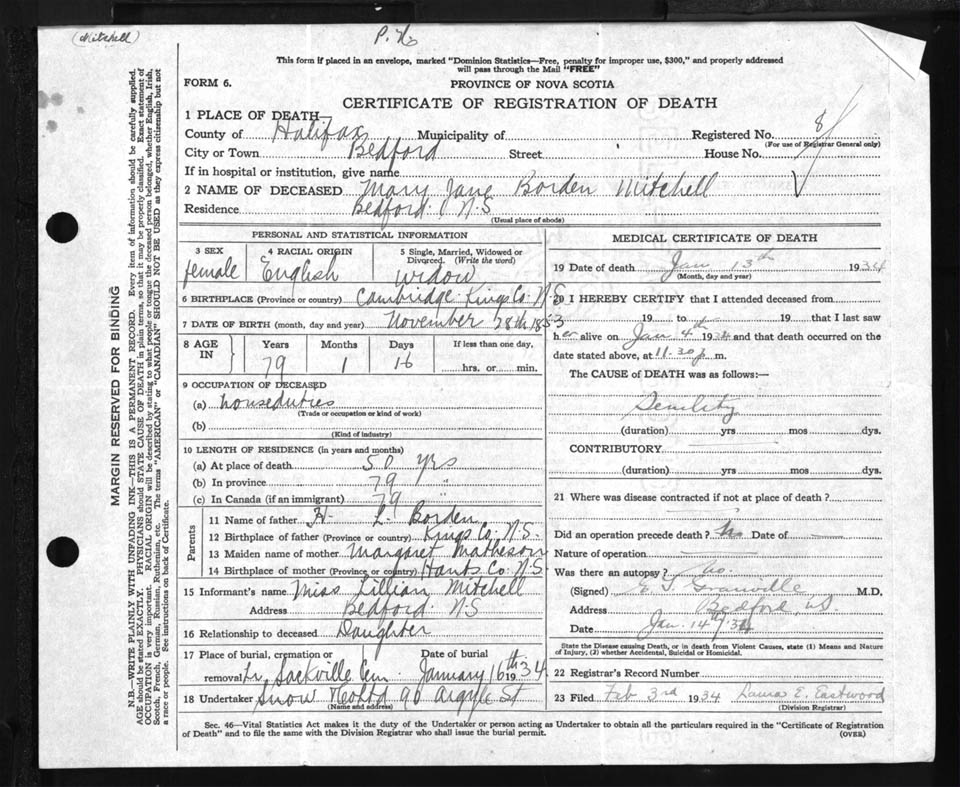 (Mitchell)
This form if placed in an envelope, marked "Dominion Statistics—Free, penalty for improper use, $300," and properly addressed
will pass through the Mail "FREE"
FORM 6.
PROVINCE OF NOVA SCOTIA
CERTIFICATE OF REGISTRATION OF DEATH
1 PLACE OF DEATH—
County of Halifax Municipality of Registered No. 8
(For use of Registrar General only)
City or Town Bedford Street House No.
If in hospital or institution, give name
2 NAME OF DECEASED Mary Jane Borden Mitchell
Residence Bedford N.S
(Usual place of abode)
PERSONAL AND STATISTICAL INFORMATION
3 SEX
female
4 RACIAL ORIGIN
English
5 Single, Married, Widowed or
Divorced. (Write the word)
widow
6 BIRTHPLACE (Province or country) Cambridge Kings Co. N.S
7 DATE OF BIRTH (month, day and year) November 28th 1853
8 AGE IN
Years Months Days If less than one day,
79 1 16 hrs. or min.
9 OCCUPATION OF DECEASED
(a) houseduties
(Trade or occupation or kind of work)
(b)
(Kind of industry)
10 LENGTH OF RESIDENCE (in years and months)
(a) At place of death 50 yrs
(b) In province 79 "
(c) In Canada (if an immigrant) 79 "
Parents
11 Name of father H. L. Borden
12 Birthplace of father (Province or country) Kings Co. N.S.
13 Maiden name of mother Margaret Matheson
14 Birthplace of mother (Province or country) Hants Co. N.S
15 Informant's name Miss Lillian Mitchell
Address Bedford N.S
16 Relationship to deceased Daughter
17 Place of burial, cremation or Date of burial
removal Lr. Sackville Cem. January 16th 1934
18 Undertaker Snow & Co Ltd 90 Argyle St
(Name and address)
MEDICAL CERTIFICATE OF DEATH
19 Date of death Jan 13th 1934
(Month, day and year)
20 I HEREBY CERTIFY that I attended deceased from
19 to 19 that I last saw
her alive on Jan 4th 1934 and that death occurred on the
date stated above, at 11.30 p m.
The CAUSE of DEATH was as follows:—
Senility
(duration) yrs mos dys.
CONTRIBUTORY
(duration) yrs mos dys.
21 Where was disease contracted if not at place of death?
Did an operation precede death? No Date of
Nature of operation
Was there an autopsy? no.
(Signed) Granville M.D.
Address Bedford, NS.
Date Jan. 14th/34
State the Disease causing Death, or in death from Violent Causes, state (1) Means and Nature
of Injury, (2) whether Accidental, Suicidal or Homicidal.
22 Registrar's Record Number
23 Filed Feb 3rd 1934 E. Eastwood
(Division Registrar)
Sec. 46—Vital Statistics Act makes it the duty of the Undertaker or person acting as Undertaker to obtain all the particulars required in the "Certificate of Registration
of Death" and to file the same with the Division Registrar who shall issue the burial permit.
(OVER)
MARGIN RESERVED FOR BINDING
N.B.—WRITE PLAINLY WITH UNFADING INK—THIS IS A PERMANENT RECORD. Every item of information should be carefully supplied.
AGE should be stated EXACTLY. PHYSICIANS should STATE CAUSE OF DEATH in plain terms, so that it may be properly classified. Exact statement of
OCCUPATION is very important. RACIAL ORIGIN will be described by stating to what people or tongue the deceased person belonged, whether English, Irish,
Scotch, French, German, Russian, Ruthenian, etc. The terms "AMERICAN" or "CANADIAN" SHOULD NOT BE USED as they express citizenship but not
a race or people. See instructions on back of Certificate.